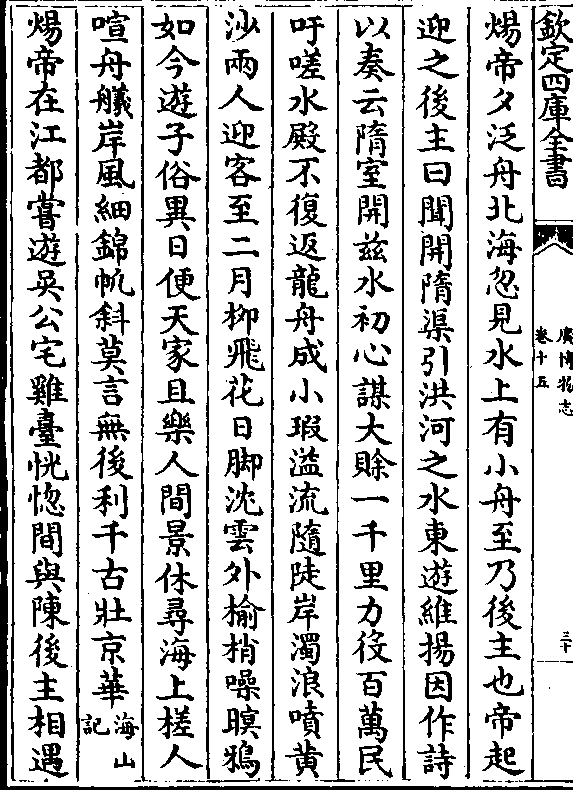 欽定四庫全書
廣博物志
卷十五
三十
煬帝夕泛舟北海忽見水上有小舟至乃後主也帝起
迎之後主曰聞開隋渠引洪河之水東遊維揚因作詩
以奏云隋室開兹水初心謀大賖一千里力役百萬民
吁嗟水殿不復返龍舟成小瑕溢流隨陡岸濁浪噴黄
沙兩人迎客至二月柳飛花日脚沈雲外榆梢噪暝鴉
如今遊子俗異日便天家且樂人間景休尋海上槎人
喧舟艤岸風細錦帆斜莫言無後利千古壯京華海山
記
煬帝在江都嘗遊吳公宅雞臺恍惚間與陳後主相遇